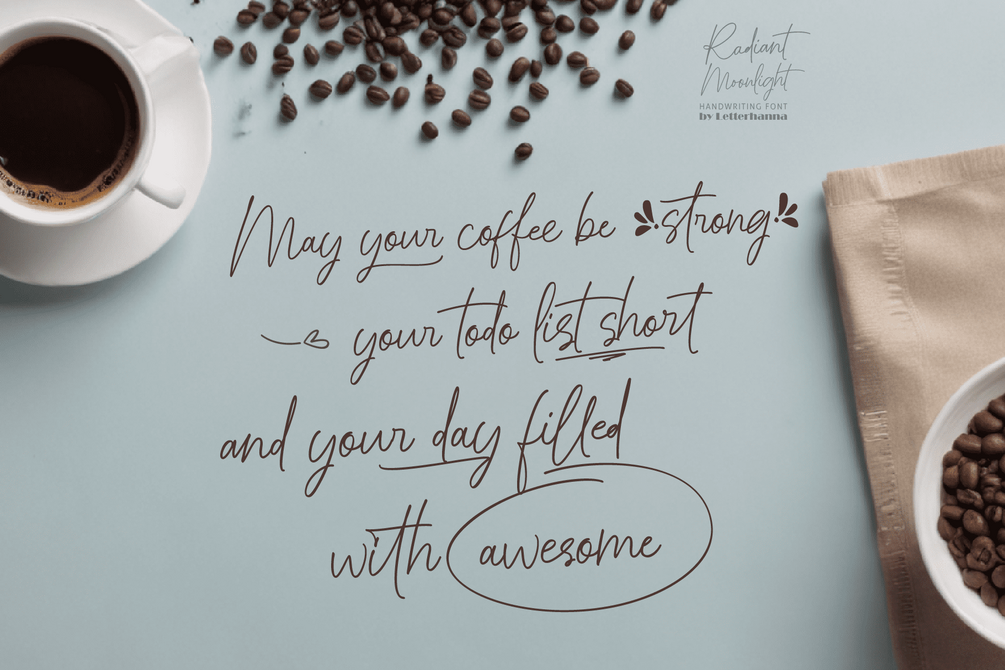 Radiant
Moonlight
HANDWRITING FONT
by Letterhanna
May your coffee be strong
your todo list short
and your day filled
with awesome